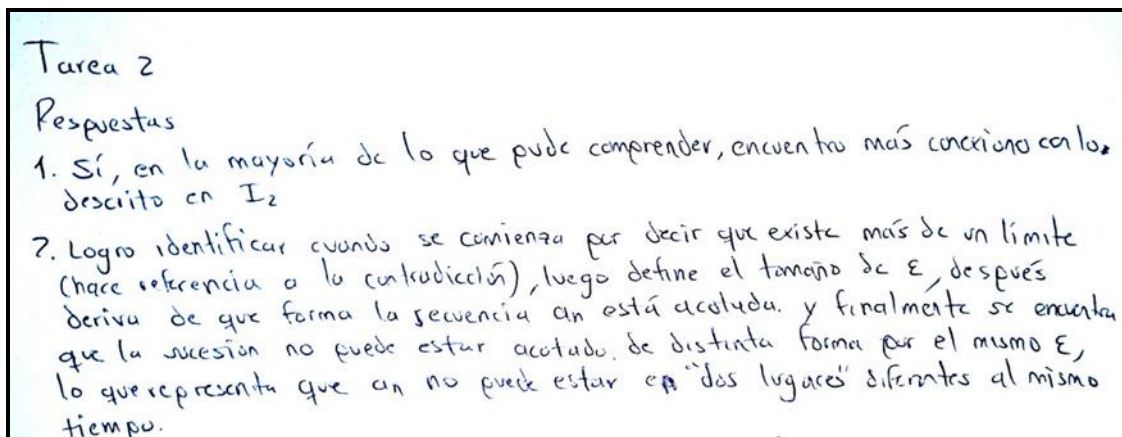 Tarea 2
Respuestas
1. Sí, en la mayoría de lo que pude comprender, encuentro más conexiono con lo
descrito en I₂
2. Logro identificar cuando se comienza por decir que existe más de un límite
(hace referencia a la contradicción), luego define el tamaño de ε, después
deriva de que forma la secuencia an está acotada. y finalmente se encuentra
que la sucesión no puede estar acotado. de distinta forma por el mismo ε,
lo que representa que an no puede estar en "dos lugares" diferentes al mismo
tiempo.